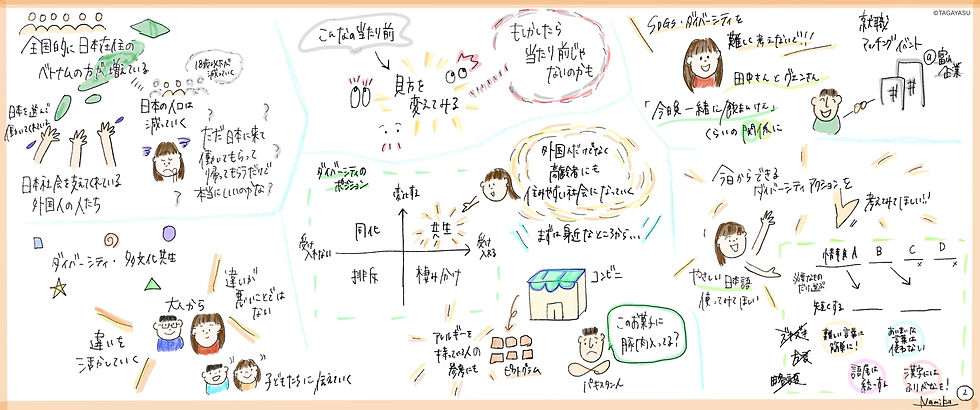 ©TAGAYASU
全国的に日本在住の
ベトナムの方が増えている
18歳以下が
減っていく
日本を選んで
働いてくれている
日本の人口は
減っていく
ただ日本に来て
働いてもらって
帰ってもらうだけで
本当にいいのかな?
日本社会を支えてくれている
外国人の人たち
ダイバーシティ・多文化共生
違いが
悪いことでは
ない
大人から
違いを
活かしていく
子どもたちに伝えていく
こんなの当たり前
見方を
変えてみる
もしかしたら
当たり前じゃ
ないのかも
ダイバーシティの
ポジション
変化する
受け
入れない
同化
共生
受け
入れる
排斥
棲み分け
外国人だけでなく
高齢者にも
住みやすい社会になっていく
まずは身近なところから…
コンビニ
アレルギーを
持っている人の
参考にも
ピクトグラム
このお菓子に
豚肉入ってる?
パキスタン人
SDGs・ダイバーシティを
難しく考えないで!!
田中さんとグエンさん
「今日晩一緒に飲まんけぇ」
くらいの関係に
就職
マッチングイベント
企業
今日からできる
ダイバーシティアクションを
考えてみてほしい!!
やさしい日本語
使ってみてほしい
情報A
B
C
D
必要なもの
だけ選ぶ
短くする
方言
難しい言葉は
簡単に!
あいまいな
言葉は
使わない
語尾は
統一する
漢字には
ふりがなを!
2
Namiko